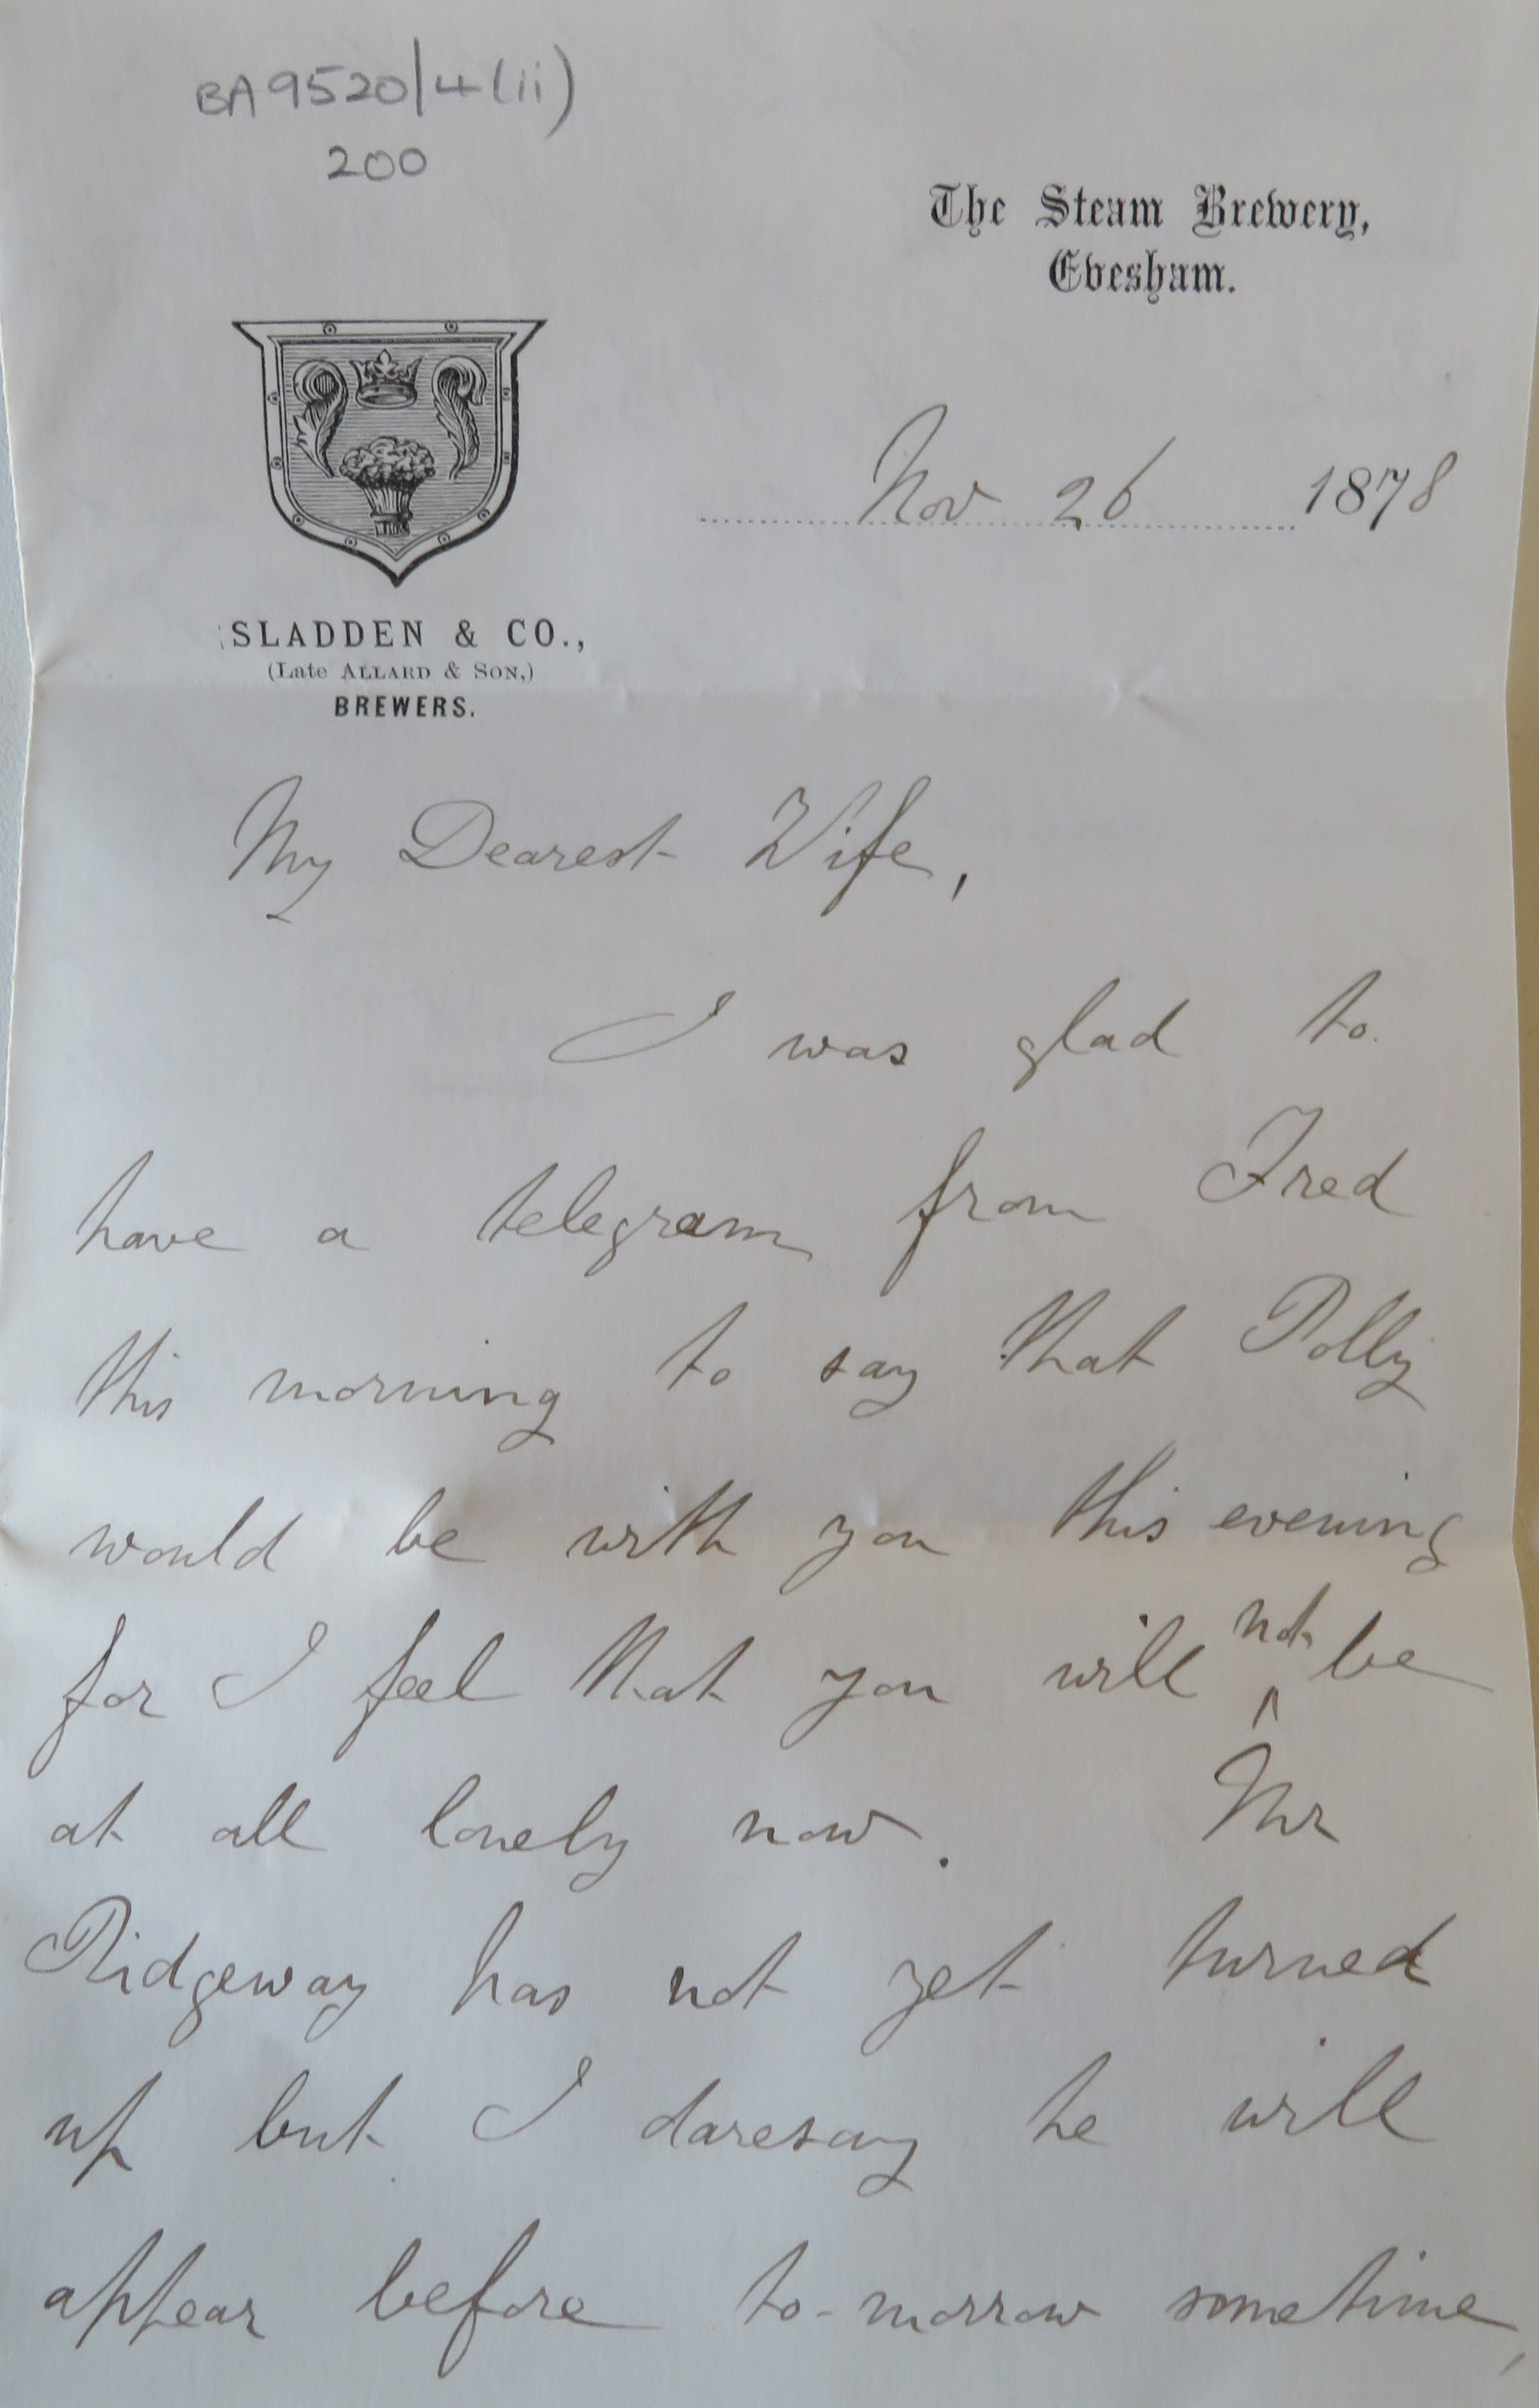 BA9520/4(ii)
200
The Steam Brewery,
Evesham.
Nov 26 1878
SLADDEN & CO.,
(Late ALLARD & SON,)
BREWERS.
My Dearest Wife,
I was glad to
have a telegram from Fred
this morning to say that Polly
would be with you this evening
for I feel that you will not be
at all lonely now. Mr
Ridgeway has not yet turned
up but I daresay he will
appear before to-morrow sometime,